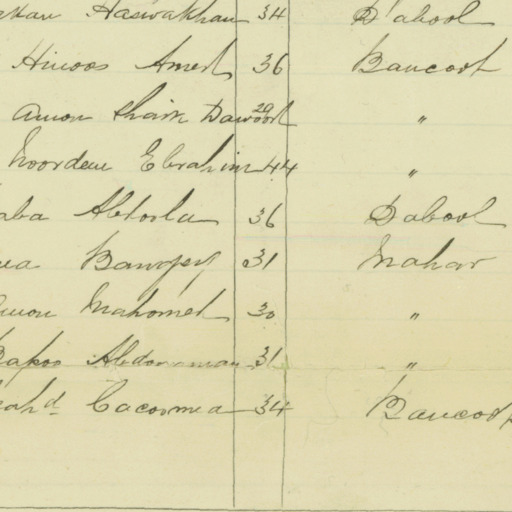 Haswakhan 34 Dabool
Hinoos Amed 36 Bancoot
Amon Shaik Dawood 29 "
Noordeen Ebrahim 44 "
aba Abdorla 36 Dabool
Bawojey 31 Mahar
Mahomed 30 "
Bapoo Abdorman 31 "
Cacormea 34 Bancoot